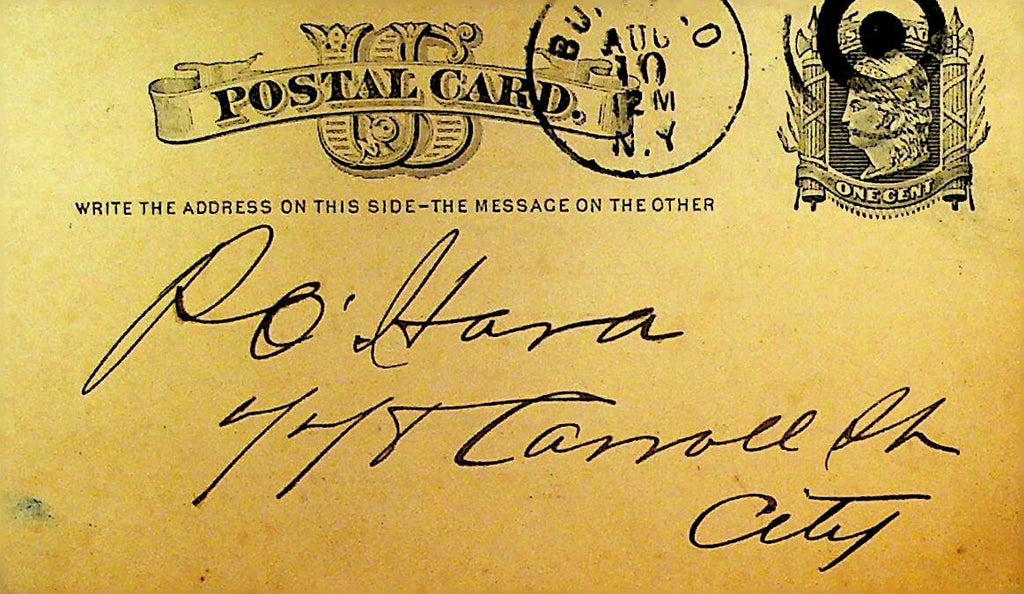 US
POSTAL CARD.
BU O
AUG
10
12 M
N.Y
ONE CENT
WRITE THE ADDRESS ON THIS SIDE–THE MESSAGE ON THE OTHER
P O'Hara
778 Carroll St
City